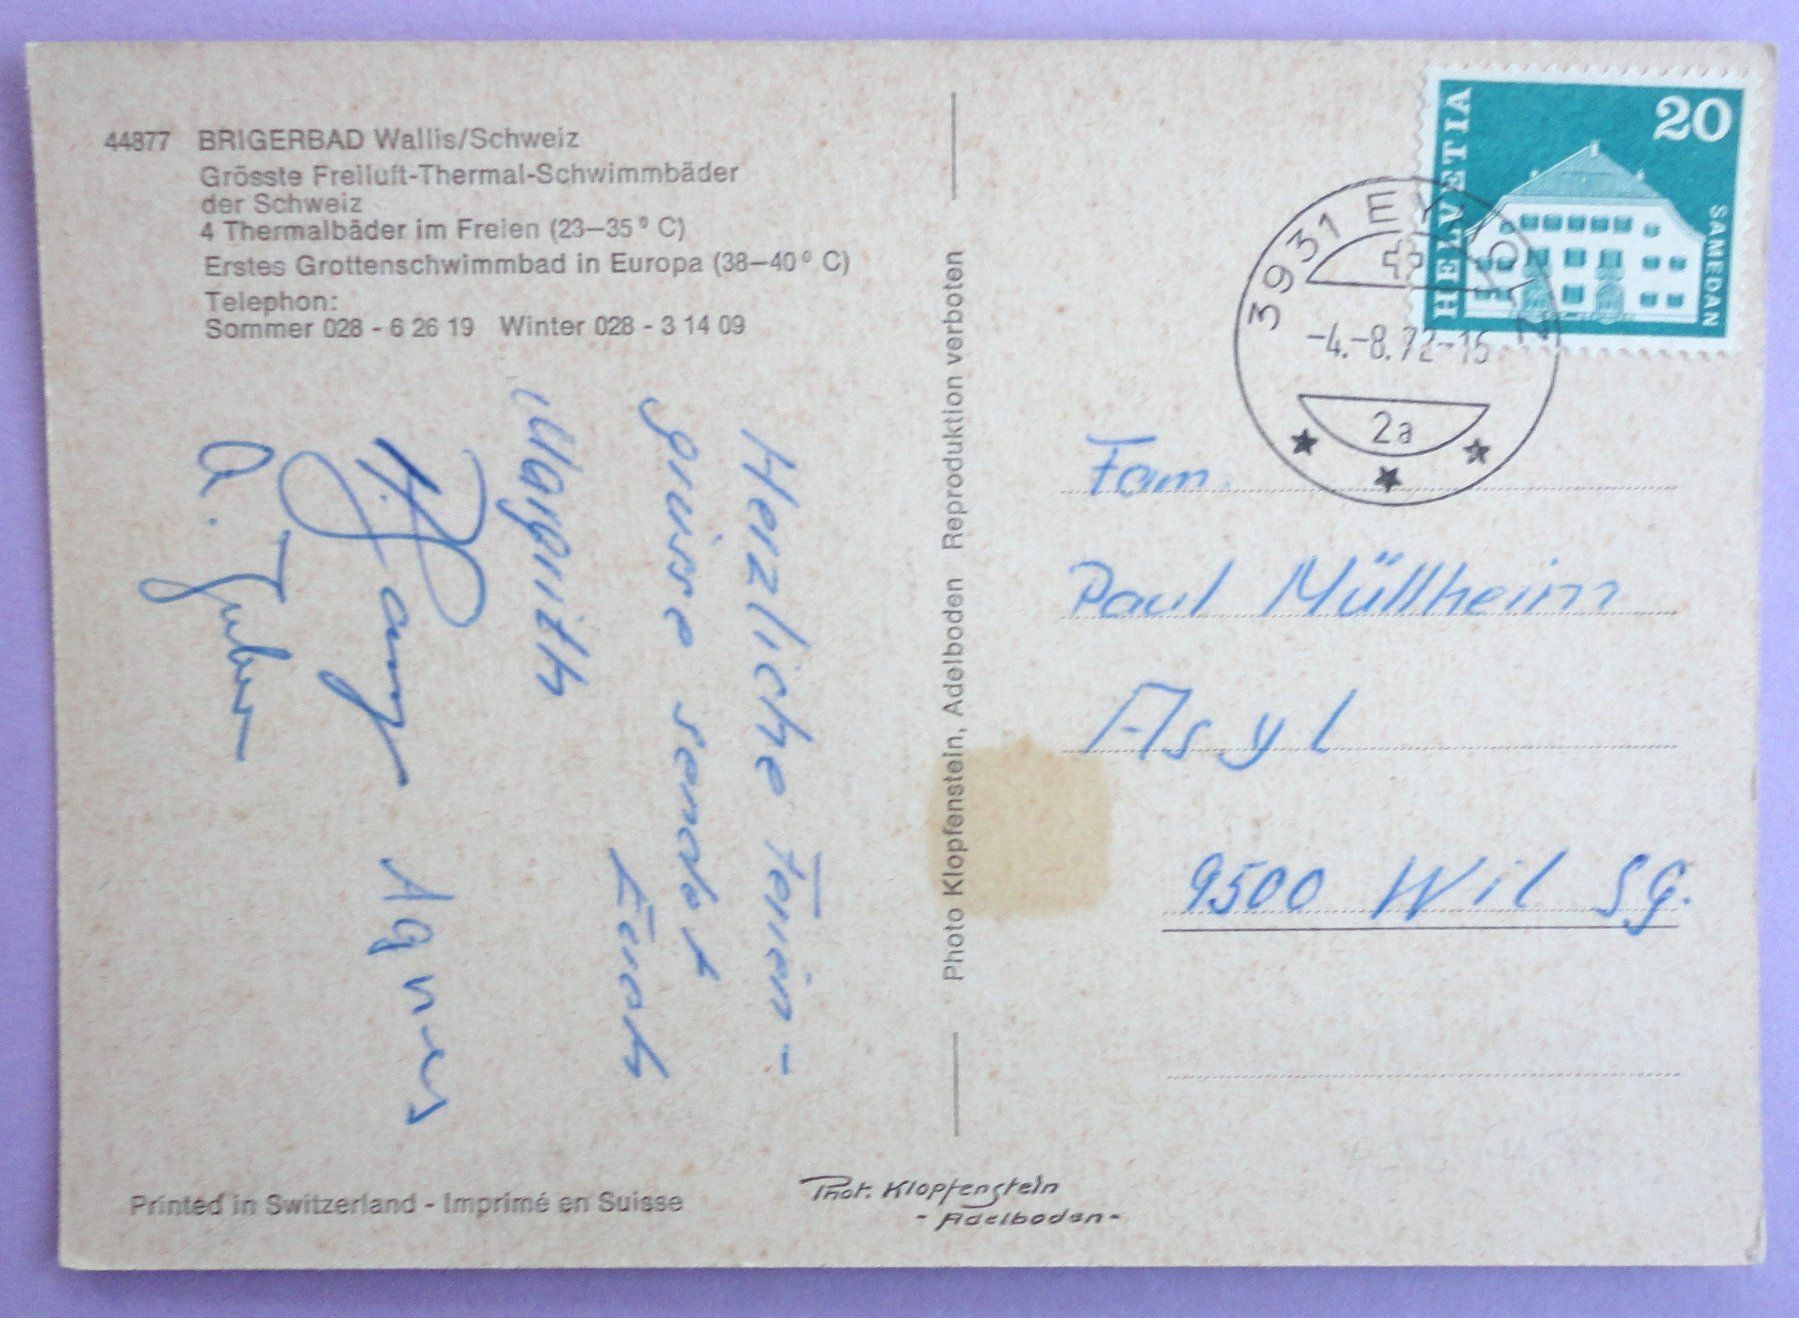 44877 BRIGERBAD Wallis/Schweiz
Grösste Freiluft-Thermal-Schwimmbäder
der Schweiz
4 Thermalbäder im Freien (23–35° C)
Erstes Grottenschwimmbad in Europa (38–40° C)
Telephon:
Sommer 028 - 6 26 19 Winter 028 - 3 14 09
Herzliche Ferien-
grüsse sendet
Euch
Margrith
Agnes
A.
Printed in Switzerland - Imprimé en Suisse
Photo Klopfenstein, Adelboden Reproduktion verboten
Phot. Klopfenstein
- Adelboden -
HELVETIA
20
SAMEDAN
3931
-4.-8.72-15
2a
Fam.
Paul Müllheim
Asyl
9500 Wil SG.